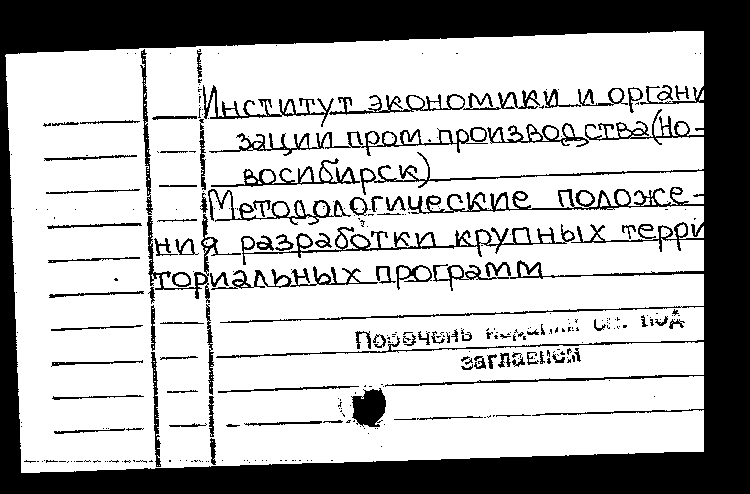 Институт экономики и органи
зации пром. производства (Но-
восибирск)
Методологические положе-
ния разработки крупных терри
ториальных программ
Перечень изданий см. под
заглавием